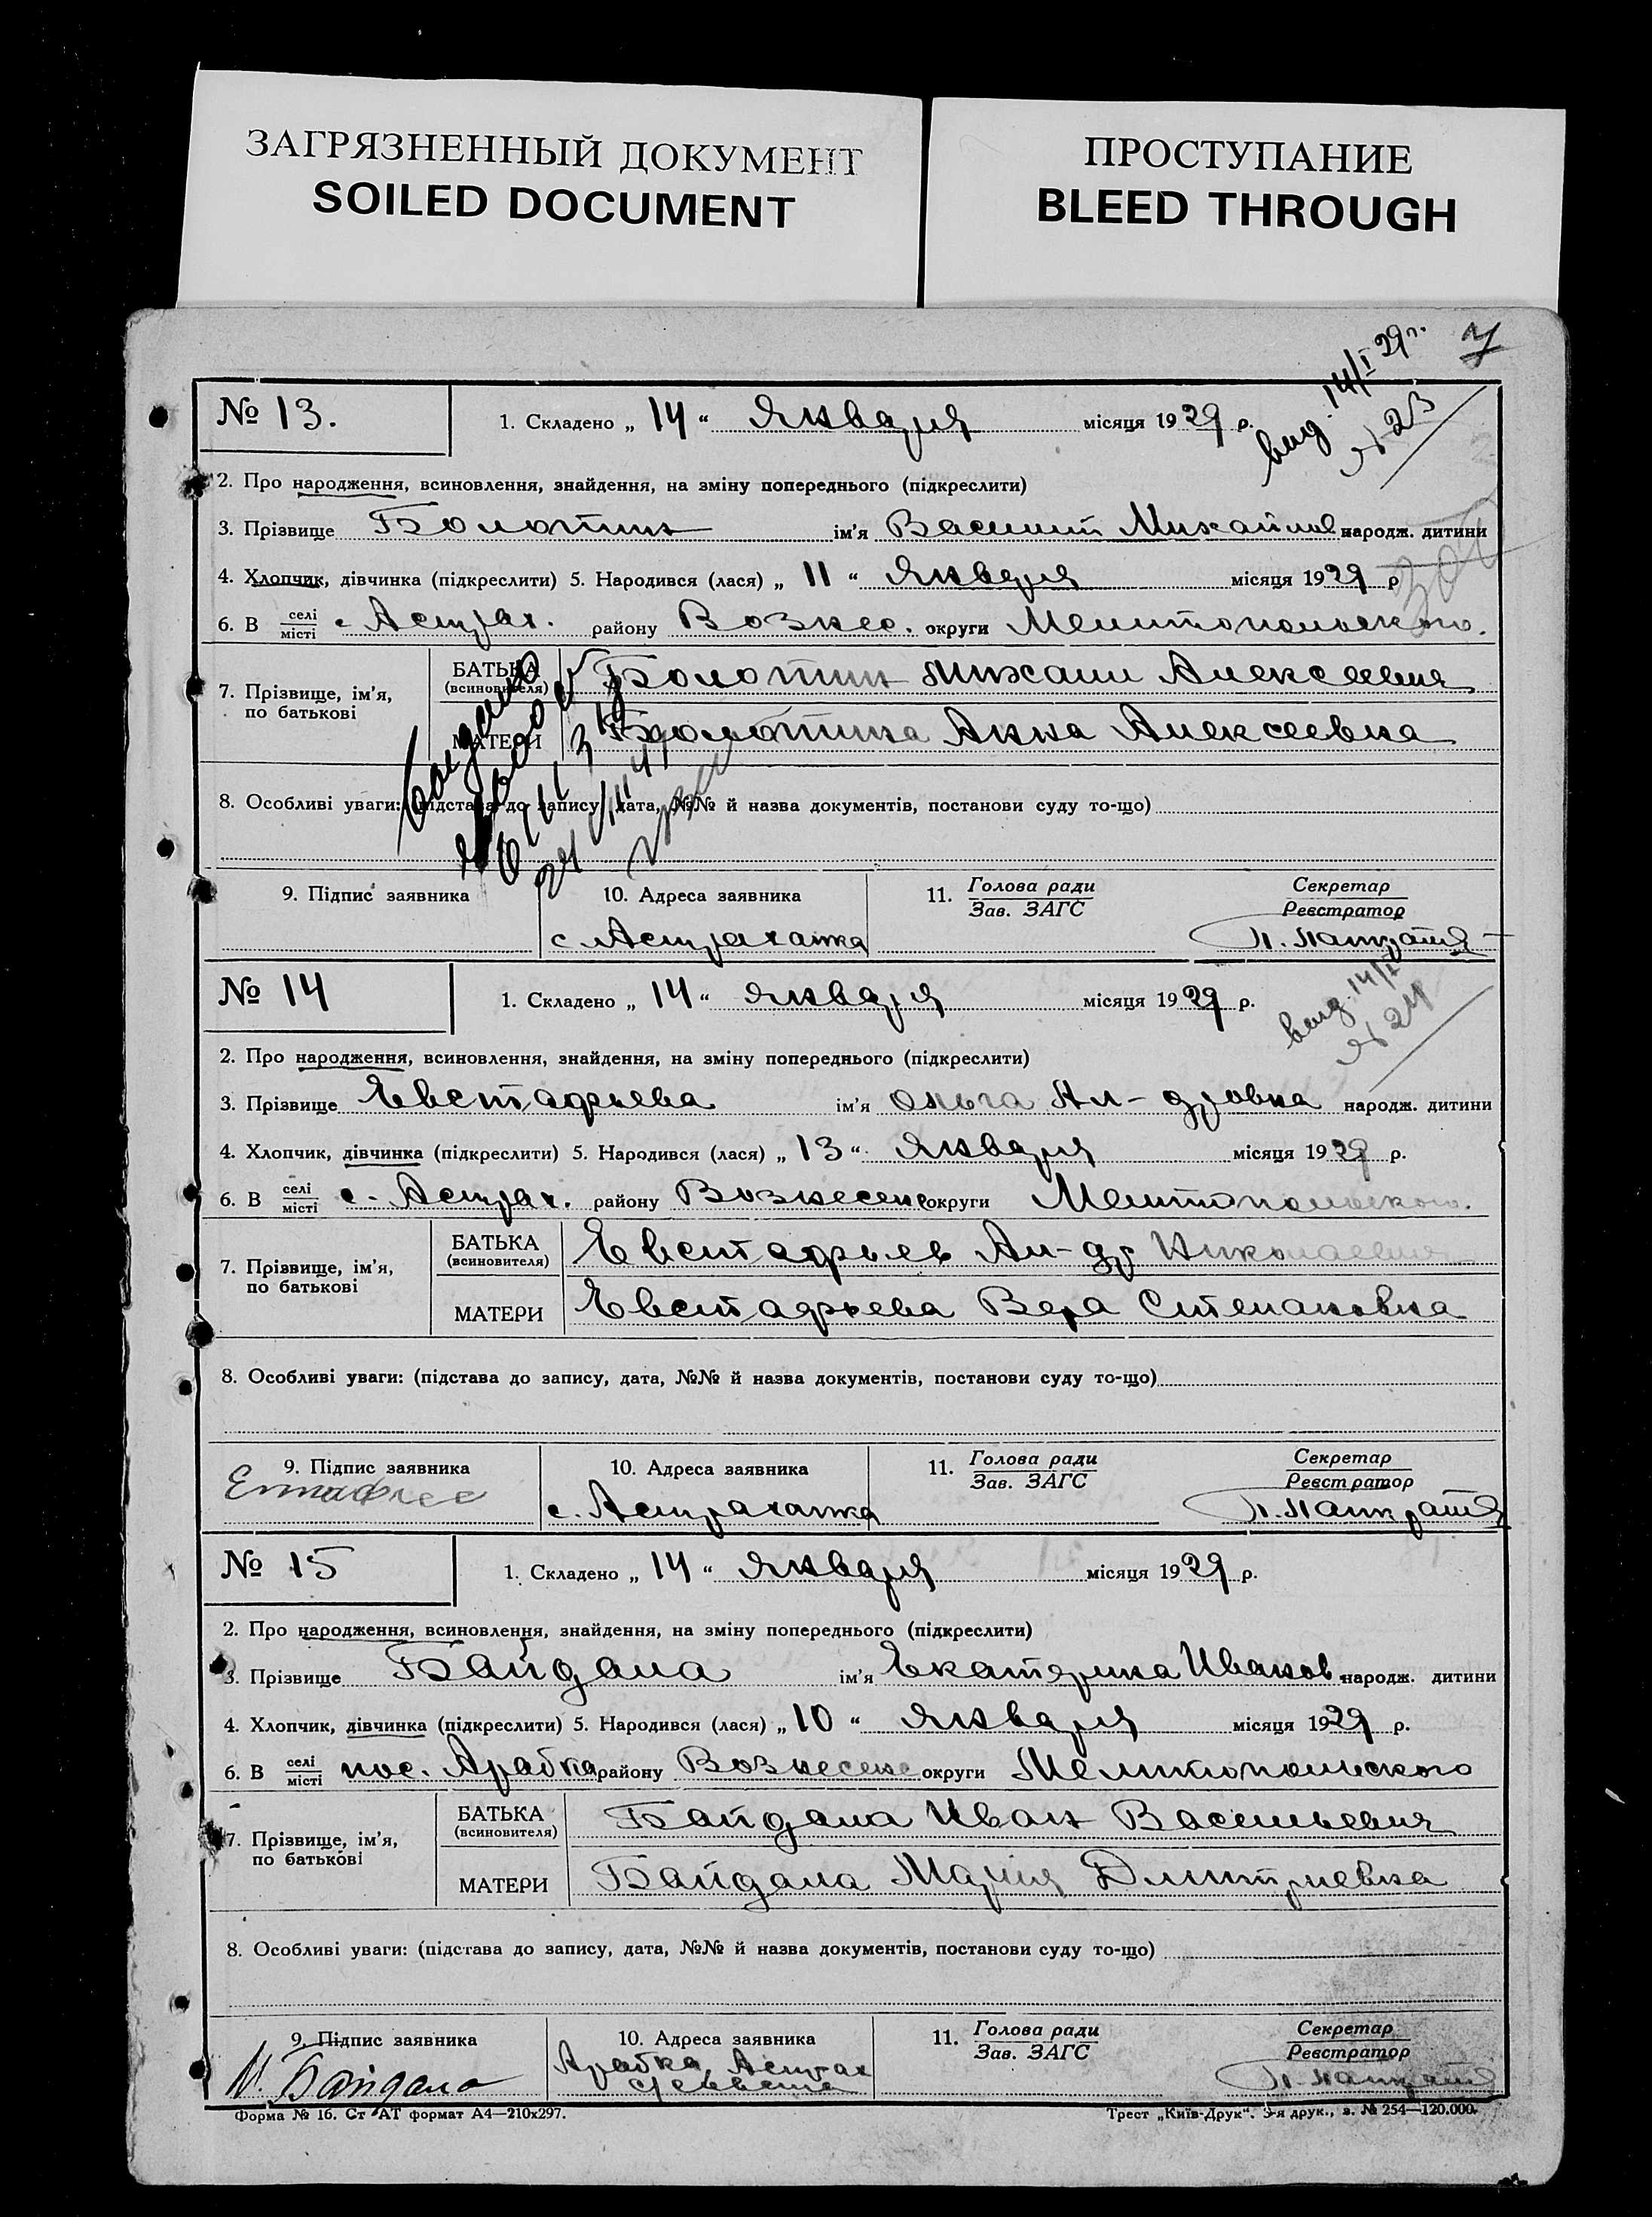 ЗАГРЯЗНЕННЫЙ ДОКУМЕНТ
SOILED DOCUMENT
ПРОСТУПАНИЕ
BLEED THROUGH
7
выд. 14/I 29г.
№ 23
№ 13.
1. Складено „ 14 “ Января місяця 1929 р.
2. Про народження, всиновлення, знайдення, на зміну попереднього (підкреслити)
3. Прізвище Болотин ім'я Василий Михайлов народж. дитини
4. Хлопчик, дівчинка (підкреслити) 5. Народився (лася) „ 11 “ Января місяця 1929 р
6. В селі місті с Астрах. району Вознес. округи Мелитопольского.
7. Прізвище, ім'я, по батькові
БАТЬКА (всиновителя) Болотин Михаил Алексеевич
МАТЕРИ Болотина Анна Алексеевна
8. Особливі уваги: (підстава до запису, дата, №№ й назва документів, постанови суду то-що)
9. Підпис заявника
10. Адреса заявника
с Астраханка
11. Голова ради Зав. ЗАГС
Секретар Реєстратор
№ 14
1. Складено „ 14 “ Января місяця 1929 р.
выд. 14/I
№ 24
2. Про народження, всиновлення, знайдення, на зміну попереднього (підкреслити)
3. Прізвище Евстафьева ім'я Ольга Ал-дровна народж. дитини
4. Хлопчик, дівчинка (підкреслити) 5. Народився (лася) „ 13 “ Января місяця 1929 р.
6. В селі місті с. Астрах. району Вознесенс округи Мелитопольского.
7. Прізвище, ім'я, по батькові
БАТЬКА (всиновителя) Евстафьев Ал-др Николаевич
МАТЕРИ Евстафьева Вера Степановна
8. Особливі уваги: (підстава до запису, дата, №№ й назва документів, постанови суду то-що)
9. Підпис заявника
10. Адреса заявника
с. Астраханка
11. Голова ради Зав. ЗАГС
Секретар Реєстратор
№ 15
1. Складено „ 14 “ Января місяця 1929 р.
2. Про народження, всиновлення, знайдення, на зміну попереднього (підкреслити)
3. Прізвище Байдала ім'я Екатерина Иванов народж. дитини
4. Хлопчик, дівчинка (підкреслити) 5. Народився (лася) „ 10 “ Января місяця 1929 р.
6. В селі місті пос. Арабка району Вознесенс округи Мелитопольского
7. Прізвище, ім'я, по батькові
БАТЬКА (всиновителя) Байдала Иван Васильевич
МАТЕРИ Байдала Мария Дмитриевна
8. Особливі уваги: (підстава до запису, дата, №№ й назва документів, постанови суду то-що)
9. Підпис заявника
И. Байдала
10. Адреса заявника
Арабка Астрах
с/совета
11. Голова ради Зав. ЗАГС
Секретар Реєстратор
Форма № 16. Ст АТ формат А4—210х297.
Трест „Київ-Друк“. 3-я друк., з. № 254—120.000.